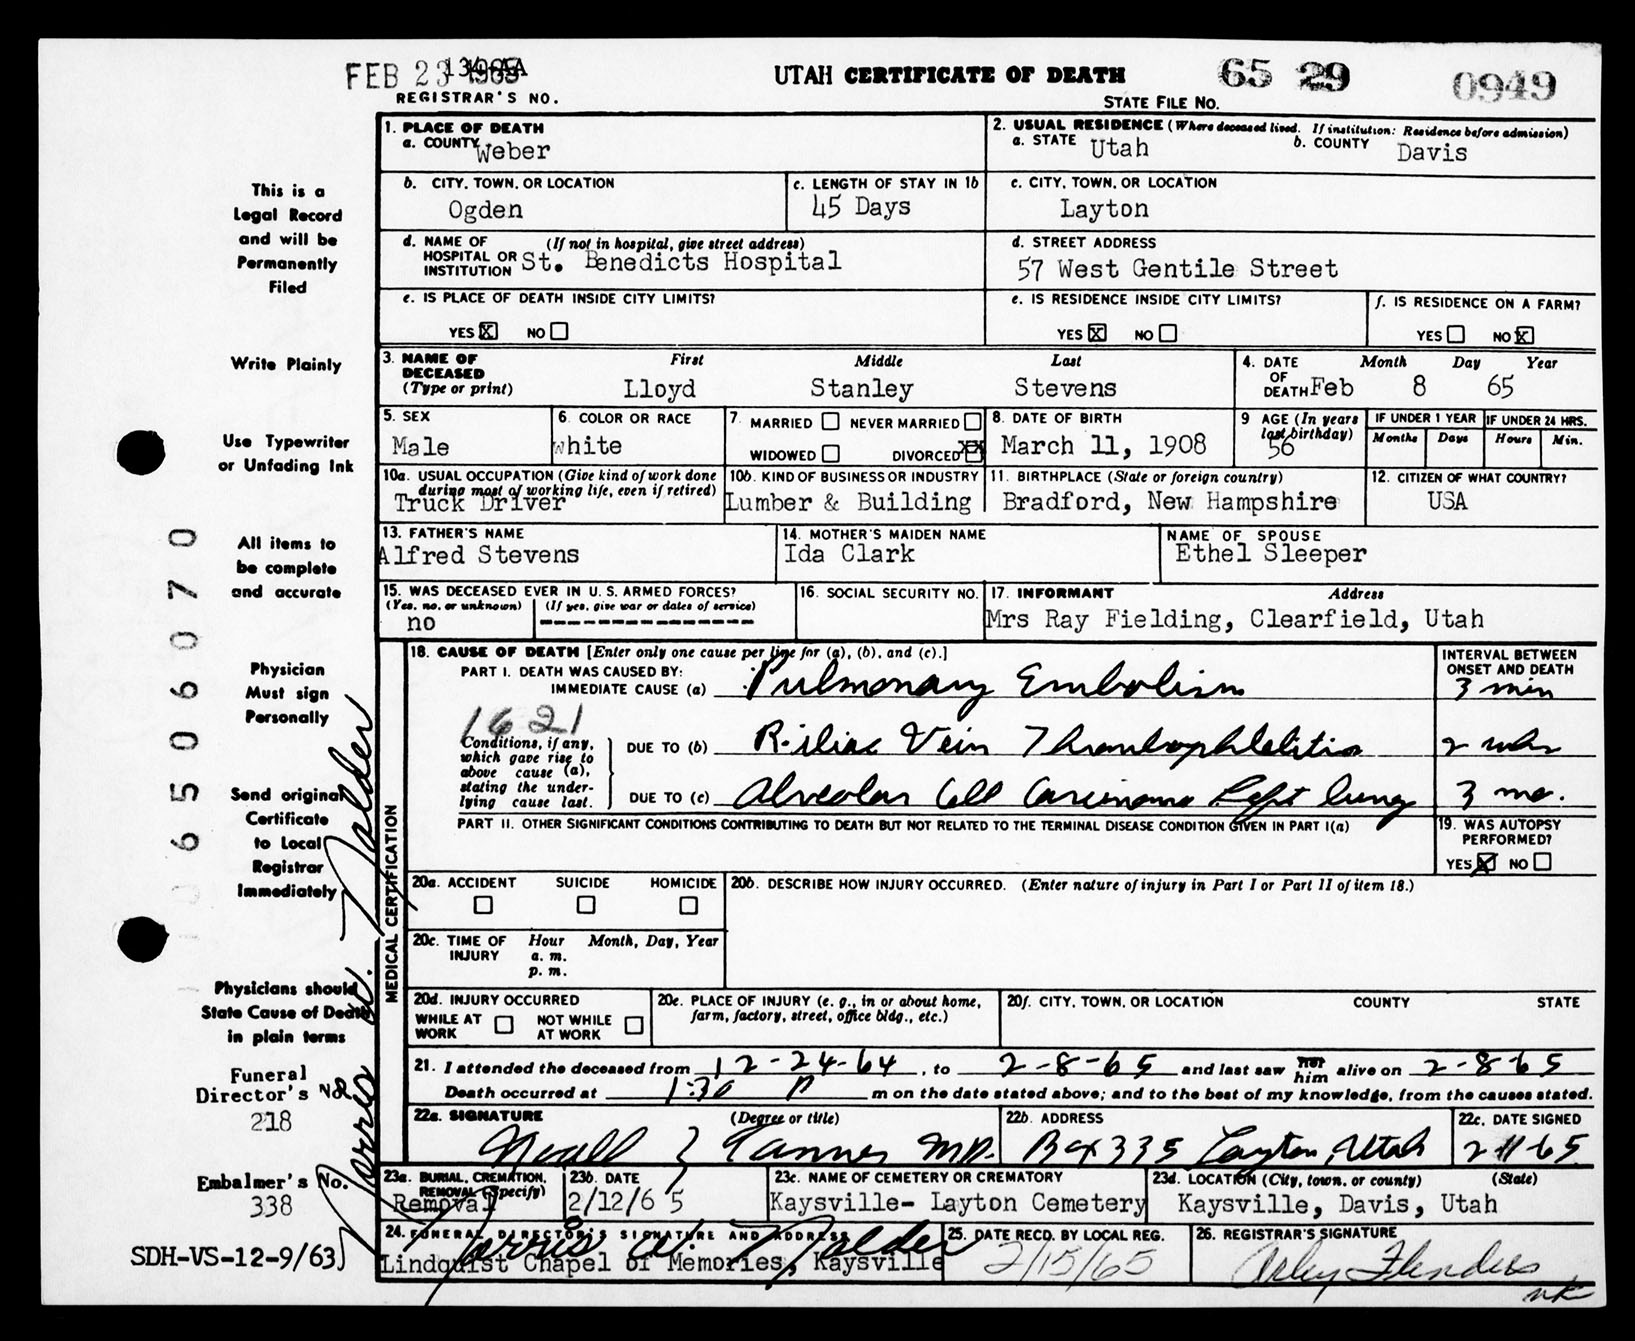 FEB 23 1965
REGISTRAR'S NO.
UTAH CERTIFICATE OF DEATH
65 29 0949
STATE FILE NO.
This is a
Legal Record
and will be
Permanently
Filed
Write Plainly
Use Typewriter
or Unfading Ink
All items to
be complete
and accurate
Physician
Must sign
Personally
Send original
Certificate
to Local
Registrar
Immediately
Physicians should
State Cause of Death
in plain terms
Funeral
Director's No.
218
Embalmer's No.
338
SDH-VS-12-9/63
6506070
Norris W. Nalder
1. PLACE OF DEATH
a. COUNTY Weber
2. USUAL RESIDENCE (Where deceased lived. If institution: Residence before admission)
a. STATE Utah b. COUNTY Davis
b. CITY, TOWN, OR LOCATION
Ogden
c. LENGTH OF STAY IN 1b
45 Days
c. CITY, TOWN, OR LOCATION
Layton
d. NAME OF (If not in hospital, give street address)
HOSPITAL OR
INSTITUTION St. Benedicts Hospital
d. STREET ADDRESS
57 West Gentile Street
e. IS PLACE OF DEATH INSIDE CITY LIMITS?
YES X NO
e. IS RESIDENCE INSIDE CITY LIMITS?
YES X NO
f. IS RESIDENCE ON A FARM?
YES NO X
3. NAME OF First Middle Last
DECEASED
(Type or print) Lloyd Stanley Stevens
4. DATE Month Day Year
OF
DEATH Feb 8 65
5. SEX
Male
6. COLOR OR RACE
white
7. MARRIED NEVER MARRIED
WIDOWED DIVORCED XX
8. DATE OF BIRTH
March 11, 1908
9 AGE (In years
last birthday)
56
IF UNDER 1 YEAR IF UNDER 24 HRS.
Months Days Hours Min.
10a. USUAL OCCUPATION (Give kind of work done
during most of working life, even if retired)
Truck Driver
10b. KIND OF BUSINESS OR INDUSTRY
Lumber & Building
11. BIRTHPLACE (State or foreign country)
Bradford, New Hampshire
12. CITIZEN OF WHAT COUNTRY?
USA
13. FATHER'S NAME
Alfred Stevens
14. MOTHER'S MAIDEN NAME
Ida Clark
NAME OF SPOUSE
Ethel Sleeper
15. WAS DECEASED EVER IN U. S. ARMED FORCES?
(Yes, no, or unknown) (If yes, give war or dates of service)
no
16. SOCIAL SECURITY NO.
17. INFORMANT Address
Mrs Ray Fielding, Clearfield, Utah
MEDICAL CERTIFICATION
18. CAUSE OF DEATH [Enter only one cause per line for (a), (b), and (c).]
INTERVAL BETWEEN
ONSET AND DEATH
PART I. DEATH WAS CAUSED BY:
IMMEDIATE CAUSE (a) Pulmonary Embolism 3 min
1621
Conditions, if any,
which gave rise to
above cause (a),
stating the under-
lying cause last.
DUE TO (b) R. iliac Vein Thrombophlebitis 2 wks
DUE TO (c) Alveolar Cell Carcinoma Left lung 3 mo.
PART II. OTHER SIGNIFICANT CONDITIONS CONTRIBUTING TO DEATH BUT NOT RELATED TO THE TERMINAL DISEASE CONDITION GIVEN IN PART I(a)
19. WAS AUTOPSY
PERFORMED?
YES X NO
20a. ACCIDENT SUICIDE HOMICIDE
20b. DESCRIBE HOW INJURY OCCURRED. (Enter nature of injury in Part I or Part II of item 18.)
20c. TIME OF Hour Month, Day, Year
INJURY a. m.
p. m.
20d. INJURY OCCURRED
WHILE AT NOT WHILE
WORK AT WORK
20e. PLACE OF INJURY (e. g., in or about home,
farm, factory, street, office bldg., etc.)
20f. CITY, TOWN, OR LOCATION COUNTY STATE
21. I attended the deceased from 12-24-64, to 2-8-65 and last saw her him alive on 2-8-65
Death occurred at 1:30 P m on the date stated above; and to the best of my knowledge, from the causes stated.
22a. SIGNATURE (Degree or title)
Tanner MD.
22b. ADDRESS
Box 335 Layton, Utah
22c. DATE SIGNED
2-11-65
23a. BURIAL, CREMATION,
REMOVAL (Specify)
Removal
23b. DATE
2/12/65
23c. NAME OF CEMETERY OR CREMATORY
Kaysville- Layton Cemetery
23d. LOCATION (City, town, or county) (State)
Kaysville, Davis, Utah
24. FUNERAL DIRECTOR'S SIGNATURE AND ADDRESS
Norris W. Nalder
Lindquist Chapel of Memories, Kaysville
25. DATE RECD. BY LOCAL REG.
2/15/65
26. REGISTRAR'S SIGNATURE
Arley Flinders